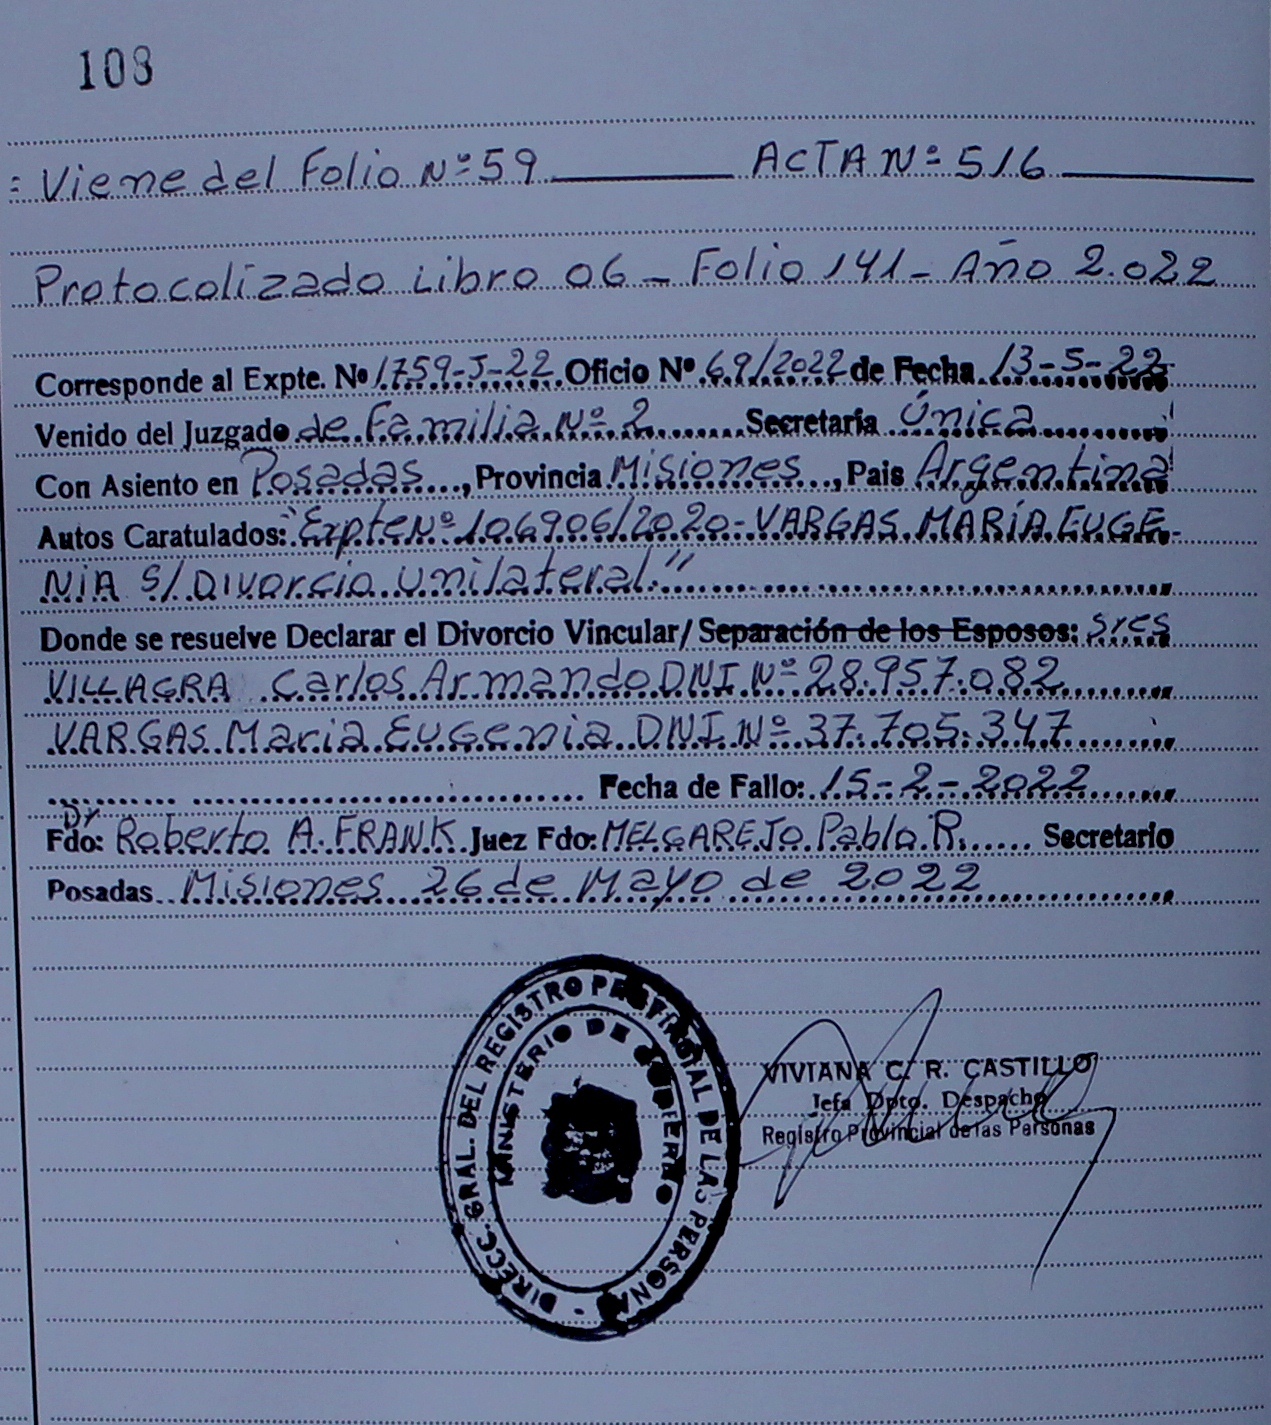 108
Viene del Folio Nº 59 ACTA Nº 516
Protocolizado Libro 06 - Folio 141 - Año 2.022
Corresponde al Expte. Nº 1759-J-22 Oficio Nº 69/2022 de Fecha 13-5-22
Venido del Juzgado de Familia Nº 2 Secretaría Única
Con Asiento en Posadas, Provincia Misiones, Pais Argentina
Autos Caratulados: "Expte Nº 106906/2020 - VARGAS MARÍA EUGE-
NIA S/ Divorcio Unilateral"
Donde se resuelve Declarar el Divorcio Vincular/ Separación de los Esposos: Sres
VILLAGRA Carlos Armando DNI Nº 28.957.082
VARGAS Maria Eugenia DNI Nº 37.705.347
Fecha de Fallo: 15-2-2022
Fdo: Dr Roberto A. FRANK Juez Fdo: MELGAREJO Pablo R. Secretario
Posadas Misiones 26 de Mayo de 2022
DIRECC. GRAL. DEL REGISTRO PROVINCIAL DE LAS PERSONAS
MINISTERIO DE GOBIERNO
VIVIANA C. R. CASTILLO
Jefa Dpto. Despacho
Registro Provincial de las Personas